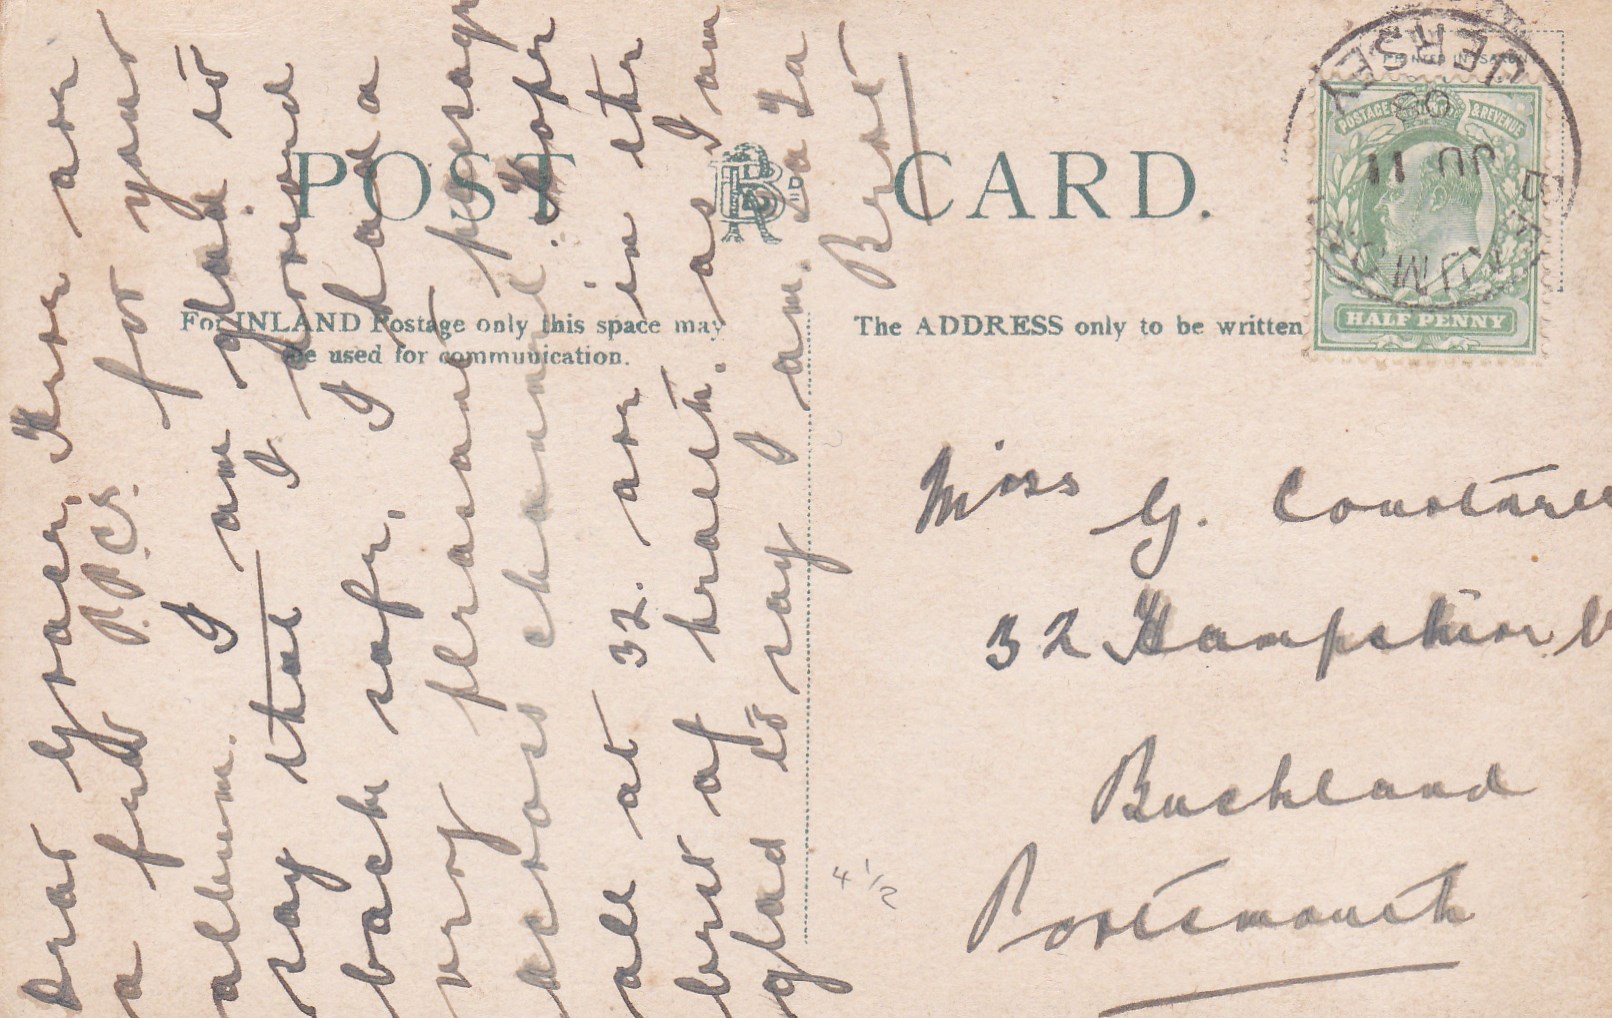 POST CARD.
For INLAND Postage only this space may
be used for communication.
The ADDRESS only to be written
PRINTED IN SAXONY
POSTAGE & REVENUE
HALF PENNY
JERSEY
JU 11
Dear Grace, Here are
a few P.P.C's. for your
album. I am glad to
say that I arrived
back safe. I had a
very pleasant passage
across channel. Hope
all at 32. are in the
best of health. as I am
glad to say I am. Ta Ta
Bert
Miss G. Constance
32 Hampshire
Buckland
Portsmouth
4 1/2